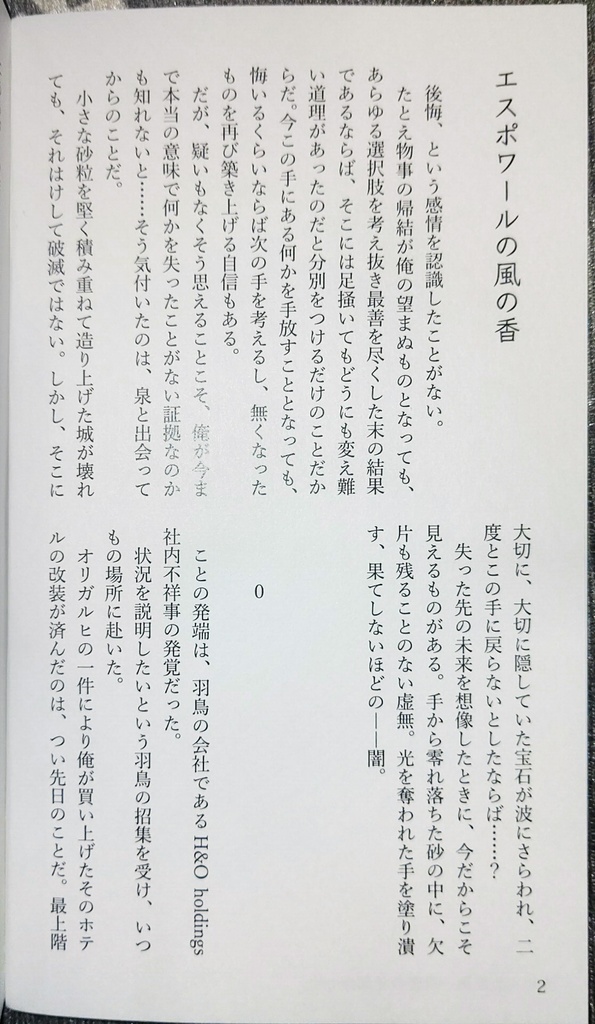 エスポワールの風の香
後悔、という感情を認識したことがない。
たとえ物事の帰結が俺の望まぬものとなっても、
あらゆる選択肢を考え抜き最善を尽くした末の結果
であるならば、そこには足掻いてもどうにも変え難
い道理があったのだと分別をつけるだけのことだか
らだ。今この手にある何かを手放すこととなっても、
悔いるくらいならば次の手を考えるし、無くなった
ものを再び築き上げる自信もある。
だが、疑いもなくそう思えることこそ、俺が今ま
で本当の意味で何かを失ったことがない証拠なのか
も知れないと……そう気付いたのは、泉と出会って
からのことだ。
小さな砂粒を堅く積み重ねて造り上げた城が壊れ
ても、それはけして破滅ではない。しかし、そこに
大切に、大切に隠していた宝石が波にさらわれ、二
度とこの手に戻らないとしたならば……？
失った先の未来を想像したときに、今だからこそ
見えるものがある。手から零れ落ちた砂の中に、欠
片も残ることのない虚無。光を奪われた手を塗り潰
す、果てしないほどの――闇。
0
ことの発端は、羽鳥の会社であるH&O holdings
社内不祥事の発覚だった。
状況を説明したいという羽鳥の招集を受け、いつ
もの場所に赴いた。
オリガルヒの一件により俺が買い上げたそのホテ
ルの改装が済んだのは、つい先日のことだ。最上階
2